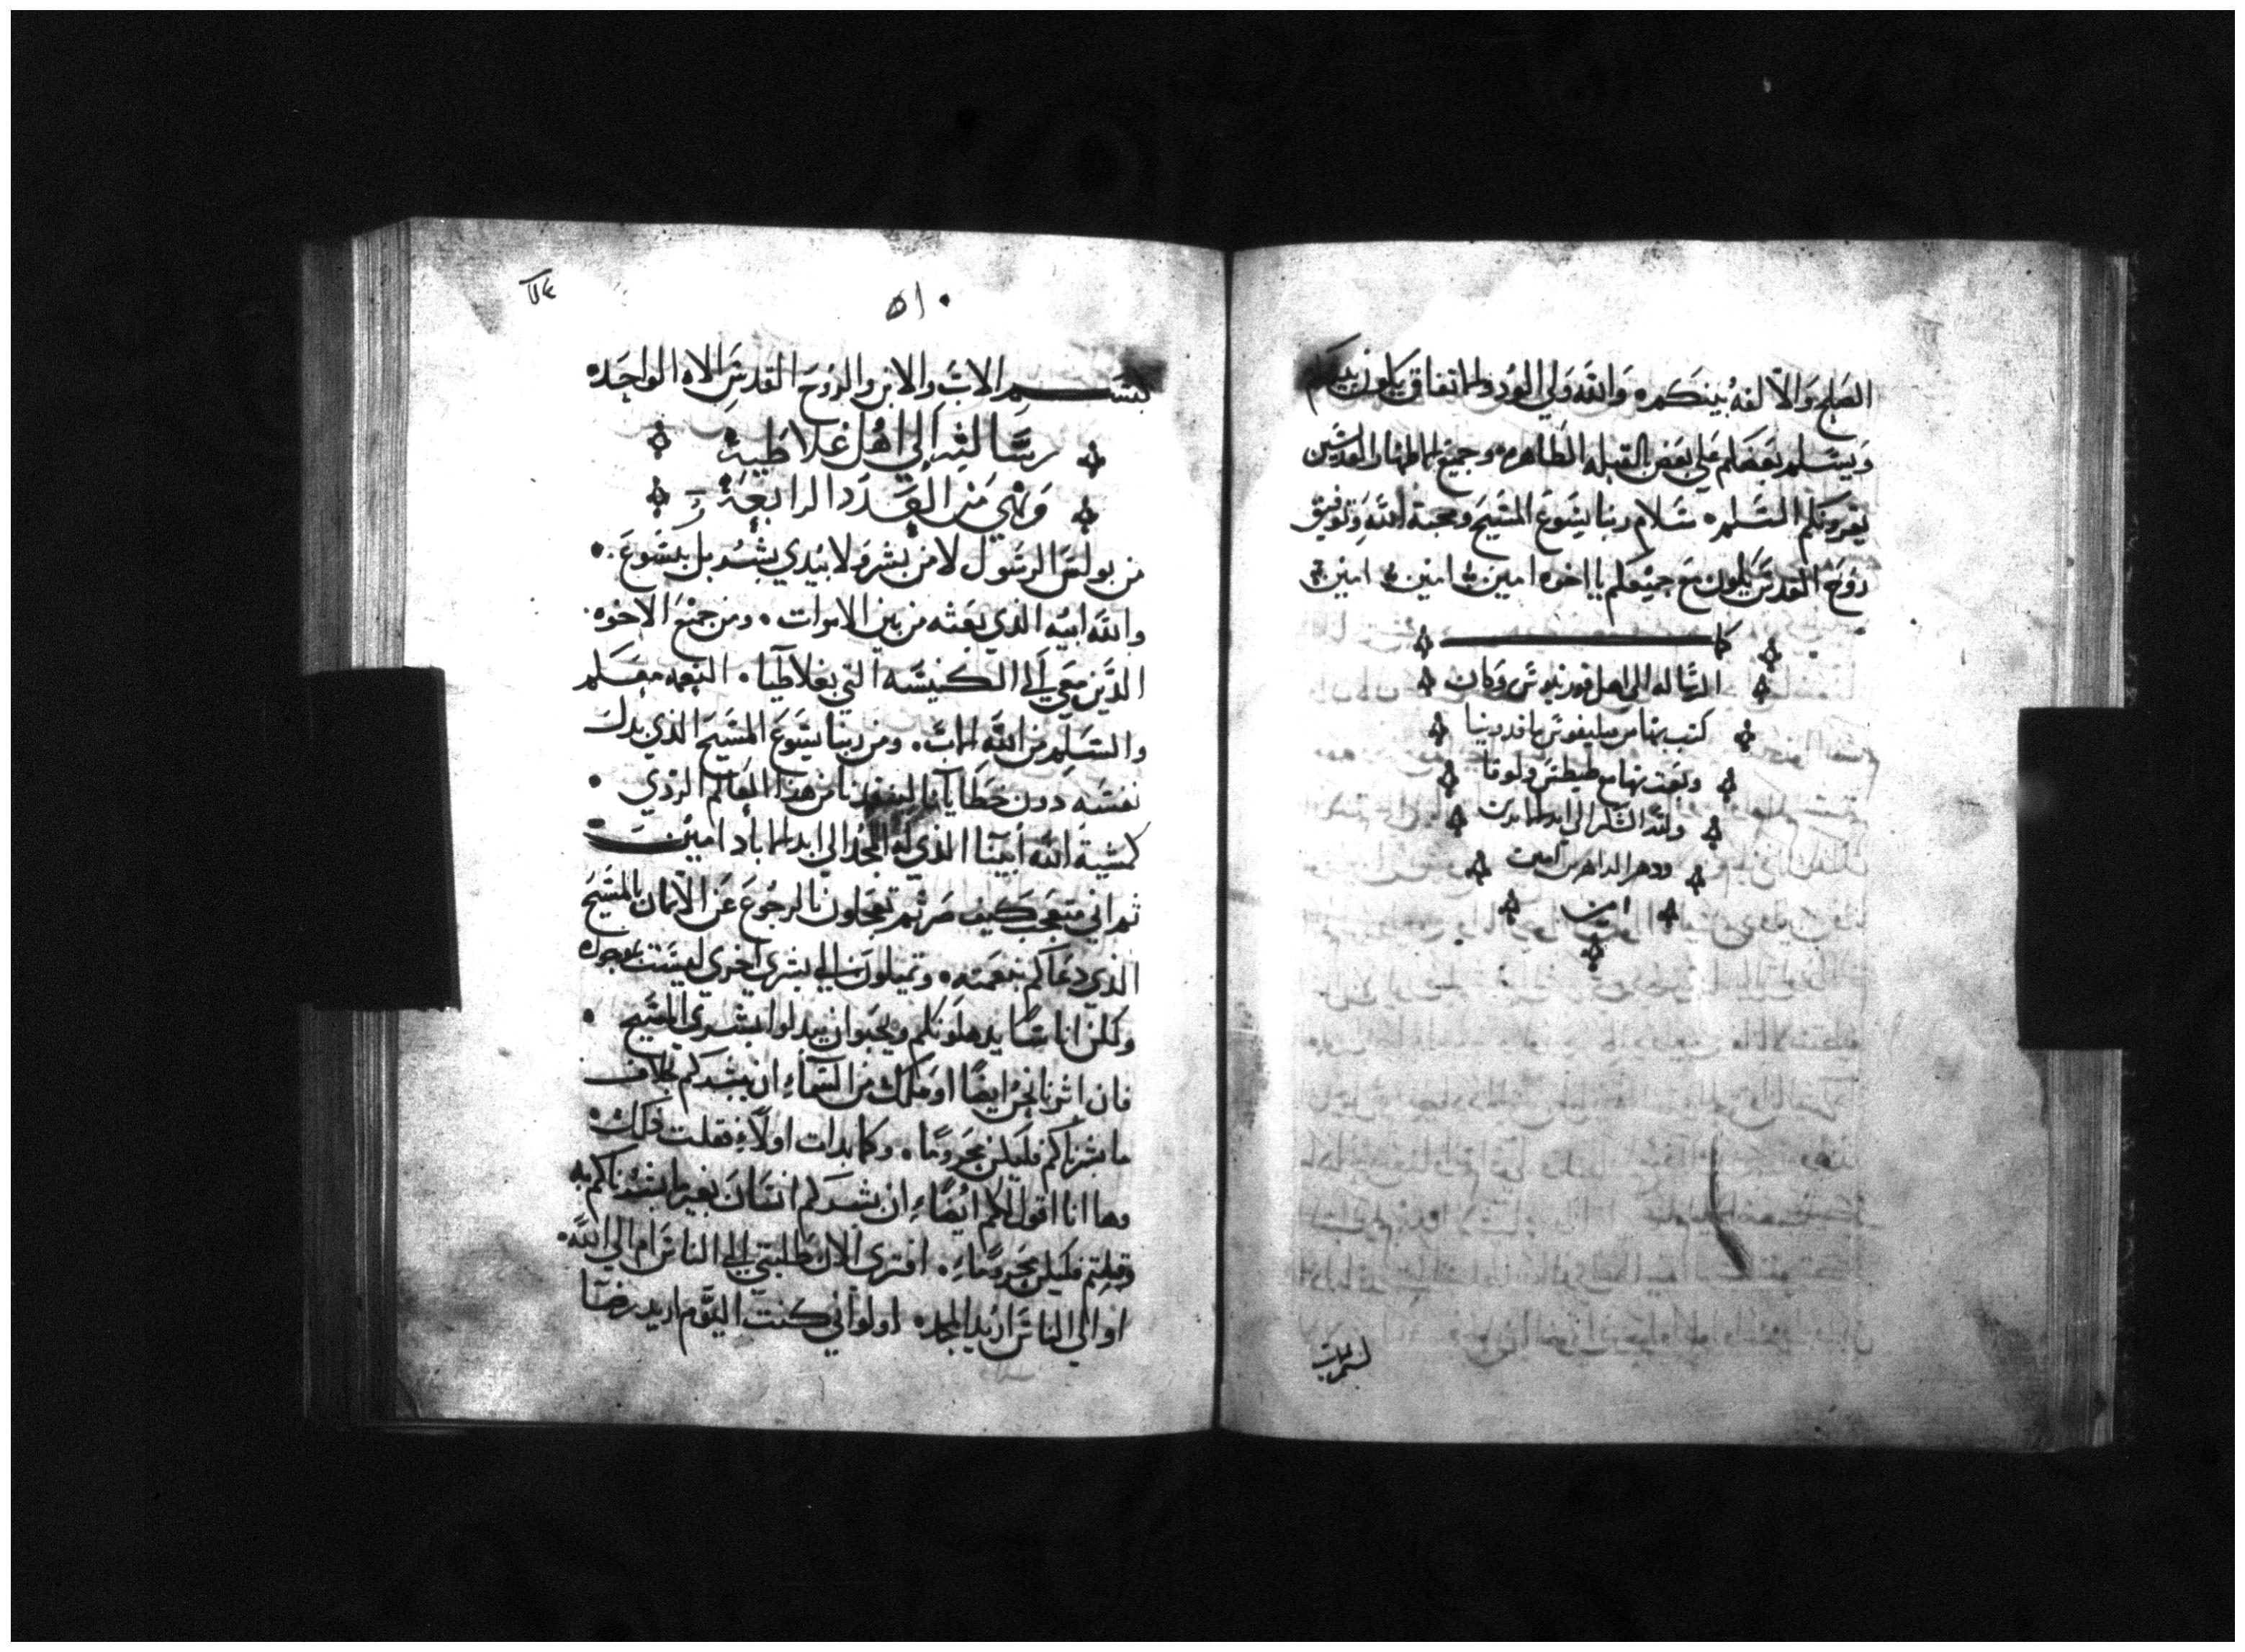 الصلح والالفه بينكم ٥ والله ولي الود والاتفاق يكون بينكم
ويسلم بعضكم علي بعض القبله الطاهره وجميع الاطهار القديسين
يقرونكم السلم ٥ سلام ربنا يسوع المسيح ومحبة الله وتوفيق
روح القدس يكون مع جميعكم يا اخوه امين امين امين
كملت
الرساله الي اهل قورنثيوس وكان
كتب بها من فيليفوس ماقدونيا
وبعث بها مع طيطس ولوقا
ولله الشكر الي ابد الابدين
ودهر الداهرين امين
امين
بسم الاب
٥١٠
بسم الاب والابن والروح القدس الاه الواحده
رسالته إلي اهل غلاطيه
وهي من العدد الرابعة
من بولس الرسول لا من بشر ولا بيدي بشر بل بيسوع
والله ابيه الذي بعثه من بين الاموات ٠ ومن جميع الاخوه
الذين معي إلي الكنيسه التي بغلاطيا ٠ النعمه معكم
والسلم من الله الاب ٠ ومن ربنا يسوع المسيح الذي بدل
نفسه دون خطايانا لينقذنا من هذا العالم الردي ٠
كمشية الله أبينا الذي له المجد الي ابد الاباد امين
ثم اني متعجب كيف صرتم تعجلون بالرجوع عن الايمان بالمسيح
الذي دعاكم بنعمته ٠ وتميلون الي بشري اخري ليست بموجوده
ولكن اناسا يدهلونكم ويحبوا ان يبدلوا بشري المسيح ٠
فان اثرنا نحن ايضا او ملك من السماء ان يبشركم بخلاف
ما بشرناكم فليكن محروما ٠ وكما بدات اولا فقلت كذلك
وها انا اقول لكم ايضا ان بشركم انسان بغير ما بشرناكم به
وقبلتم فليكن محروما ٠ افتري الان طلبتي الي الناس ام الي الله ٠
او الي الناس اريد المجد ٥ ولو اني كنت اليوم اريد رضا